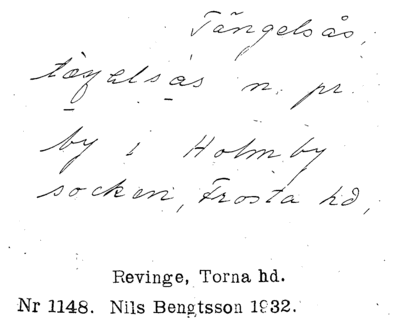 Tängelsås,
tæŋelsås n. pr.
by i Holmby
socken, Frosta hd,
Revinge, Torna hd.
Nr 1148. Nils Bengtsson 1932.